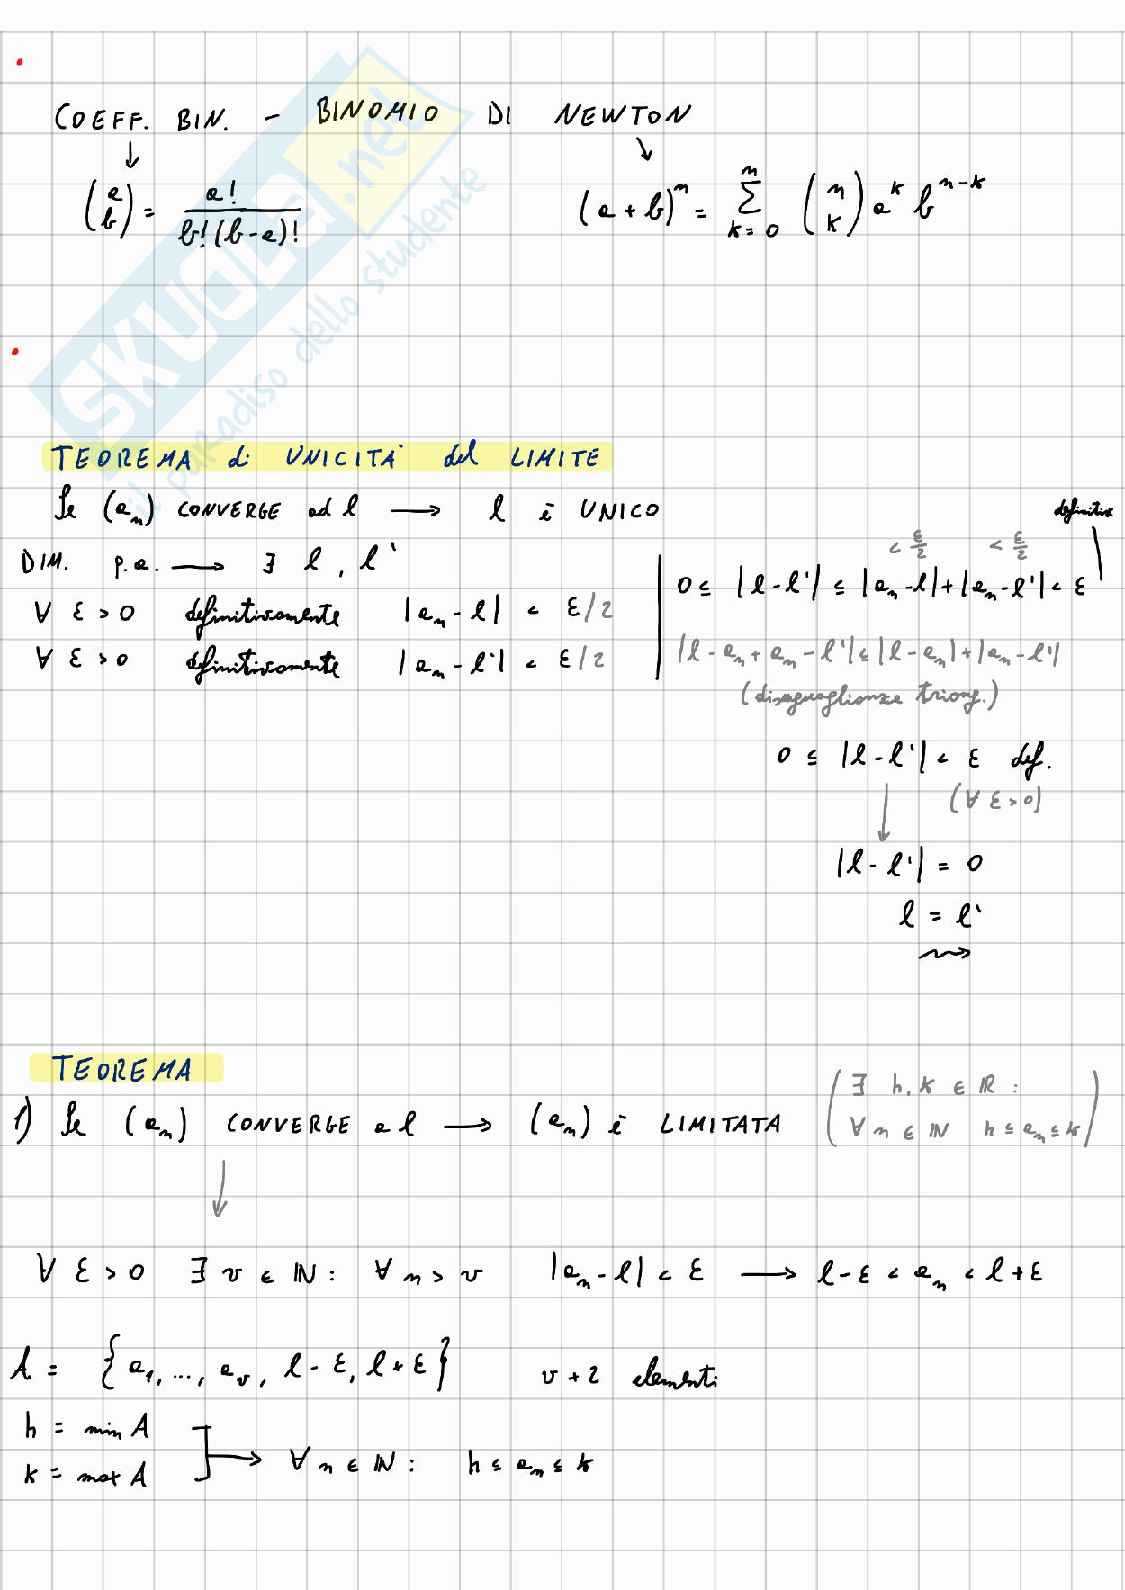 COEFF. BIN. - BINOMIO DI NEWTON
(a b) = a! / b!(b-a)!
(a+b)^n = Σ_{k=0}^{n} (n k) a^k b^{n-k}
SKUOLA.net
il paradiso dello studente
TEOREMA di UNICITÀ del LIMITE
Se (a_n) CONVERGE ad l → l è UNICO
DIM. p.a. → ∃ l, l'
∀ ε > 0 definitivamente |a_n - l| < ε/2
∀ ε > 0 definitivamente |a_n - l'| < ε/2
definitiv
< ε/2 < ε/2
0 ≤ |l - l'| ≤ |a_n - l| + |a_n - l'| < ε
|l - a_n + a_n - l'| ≤ |l - a_n| + |a_n - l'|
(disuguaglianza triang.)
0 ≤ |l - l'| < ε def.
(∀ ε > 0)
|l - l'| = 0
l = l'
TEOREMA
1) Se (a_n) CONVERGE a l → (a_n) è LIMITATA
(∃ h, k ∈ ℝ :
∀ n ∈ ℕ h ≤ a_n ≤ k)
∀ ε > 0 ∃ ν ∈ ℕ : ∀ n > ν |a_n - l| < ε → l - ε < a_n < l + ε
A = {a_1, ..., a_ν, l - ε, l + ε} ν + 2 elementi
h = min A
k = max A
→ ∀ n ∈ ℕ : h ≤ a_n ≤ k